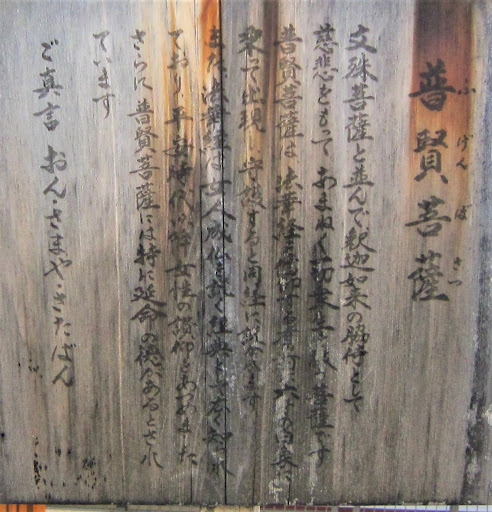 普賢菩薩
ふげんぼさつ
文殊菩薩と並んで釈迦如来の脇侍として
慈悲をもってあまねく一切衆生を救う菩薩です
普賢菩薩は法華経を 六牙の白象に
乗って出現し守護すると同経に説かれます
また法華経は女人成仏を説く経典として広く知られ
ており平安時代以降女性の信仰をあつめました
さらに普賢菩薩には特に延命の徳があるとされ
ています
ご真言 おん・さまや・さたばん